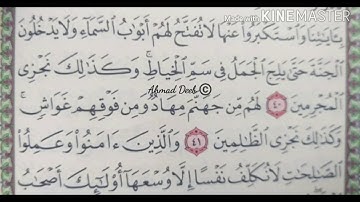 Made with KINEMASTER
بِـَٔايَٰتِنَا وَٱسْتَكْبَرُوا۟ عَنْهَا لَا تُفَتَّحُ لَهُمْ أَبْوَٰبُ ٱلسَّمَآءِ وَلَا يَدْخُلُونَ
ٱلْجَنَّةَ حَتَّىٰ يَلِجَ ٱلْجَمَلُ فِى سَمِّ ٱلْخِيَاطِ ۚ وَكَذَٰلِكَ نَجْزِى
Ahmad Deeb ©
ٱلْمُجْرِمِينَ ٤٠ لَهُم مِّن جَهَنَّمَ مِهَادٌ وَمِن فَوْقِهِمْ غَوَاشٍ ۚ
وَكَذَٰلِكَ نَجْزِى ٱلظَّٰلِمِينَ ٤١ وَٱلَّذِينَ ءَامَنُوا۟ وَعَمِلُوا۟
ٱلصَّٰلِحَٰتِ لَا نُكَلِّفُ نَفْسًا إِلَّا وُسْعَهَآ أُو۟لَٰٓئِكَ أَصْحَٰبُ